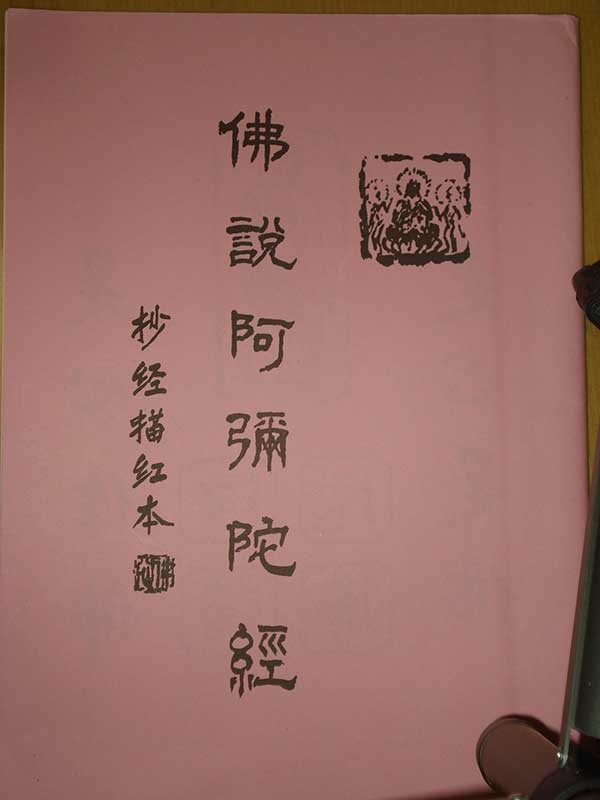 佛說阿彌陀經
抄经描红本